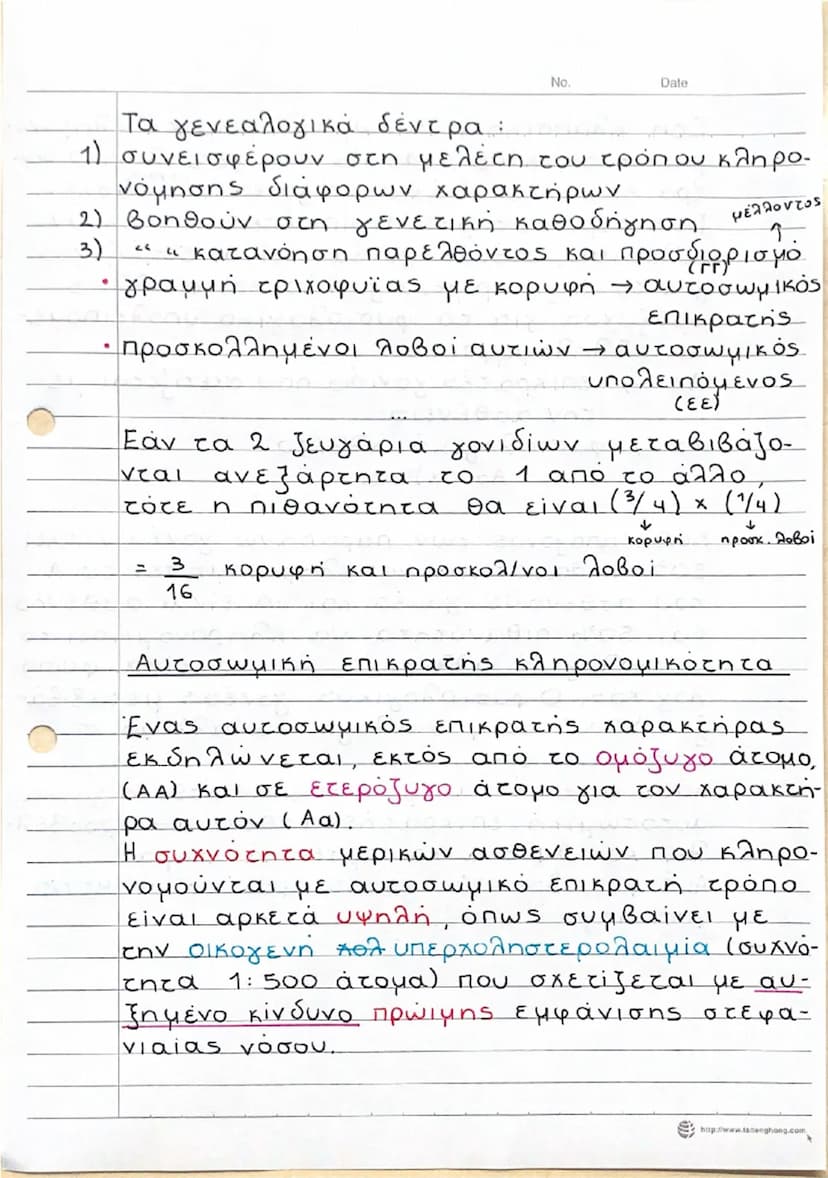 No. Date
Τα γενεαλογικά δέντρα :
1) συνεισφέρουν στη μελέτη του τρόπου κληρο-
νόμησης διάφορων χαρακτήρων
2) βοηθούν στη γενετική καθοδήγηση μέλλοντος
3) “ “ κατανόηση παρελθόντος και προσδιορισμό
(ΓΓ)
• γραμμή τριχοφυΐας με κορυφή → αυτοσωμικός
επικρατής
• προσκολλημένοι λοβοί αυτιών → αυτοσωμικός
υπολειπόμενος
(εε)
...
Εάν τα 2 ζευγάρια γονιδίων μεταβιβάζο-
νται ανεξάρτητα το 1 από το άλλο,
τότε η πιθανότητα θα είναι (3/4) × (1/4)
κορυφή προσκ. λοβοί
= 3/16 κορυφή και προσκολ/νοι λοβοί
Αυτοσωμική επικρατής κληρονομικότητα
Ένας αυτοσωμικός επικρατής χαρακτήρας
εκδηλώνεται, εκτός από το ομόζυγο άτομο,
(ΑΑ) και σε ετερόζυγο άτομο για τον χαρακτή-
ρα αυτόν (Αα).
Η συχνότητα μερικών ασθενειών που κληρο-
νομούνται με αυτοσωμικό επικρατή τρόπο
είναι αρκετά υψηλή, όπως συμβαίνει με
την οικογενή χολ υπερχοληστερολαιμία (συχνό-
τητα 1:500 άτομα) που σχετίζεται με αυ-
ξημένο κίνδυνο πρώιμης εμφάνισης στεφα-
νιαίας νόσου.